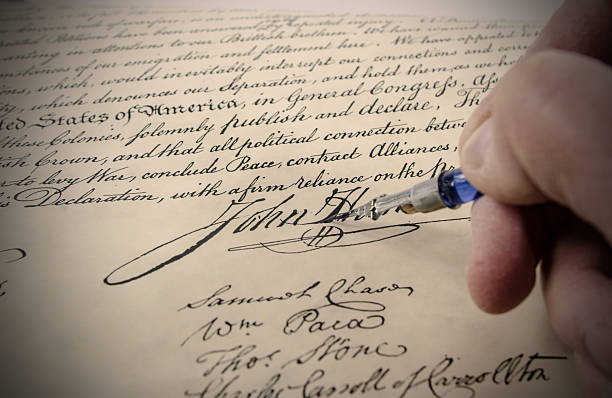 of warfare, is an
Petitions have been answered only by repeated injury.
anting in attentions to our Brittish brethren. We have warned
umstances of our emigration and settlement here. We have appealed to
ions, which, would inevitably interrupt our connections and corre
ty, which denounces our Separation, and hold them, as we ho
ted States of America, in General Congress, Ass
these Colonies, solemnly publish and declare, Th
itish Crown, and that all political connection betwe
r to levy War, conclude Peace, contract Alliances,
is Declaration, with a firm reliance on the Pr
John Han
Samuel Chase
Wm Paca
Thos. Stone
Charles Carroll of Carrollton